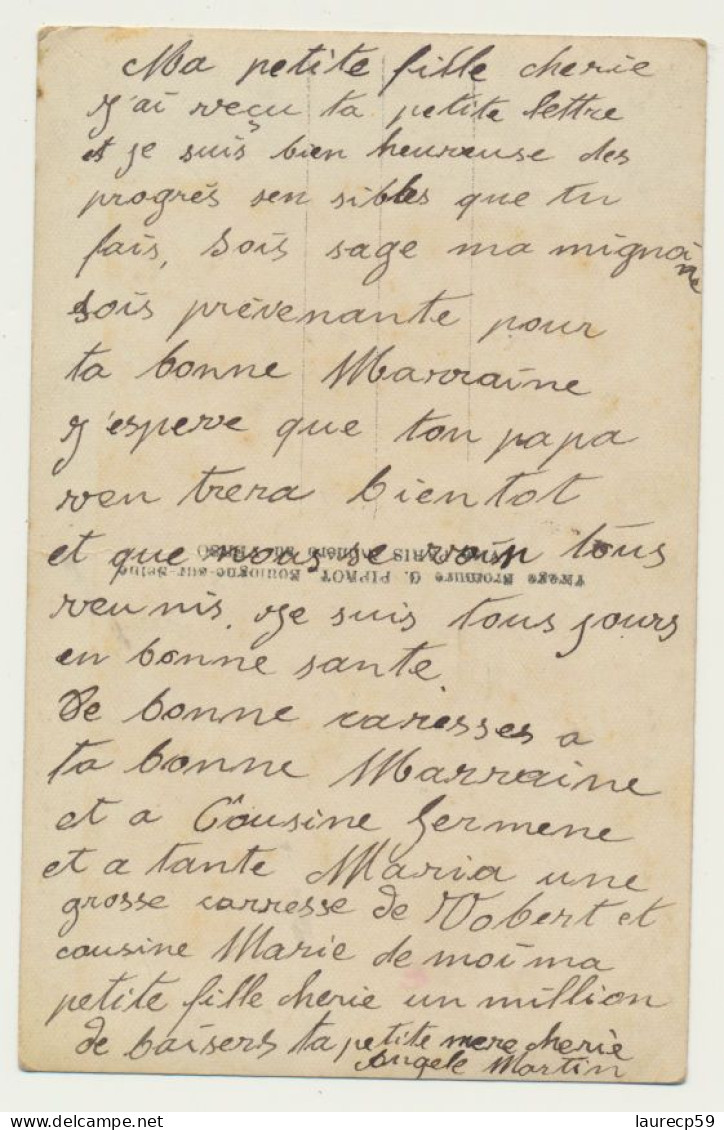 Ma petite fille cherie
J'ai reçu ta petite lettre
et je suis bien heureuse des
progrés sen sibles que tu
fais, Sois sage ma mignonne
sois prévenante pour
ta bonne Marraine
J'espere que ton papa
ren trera bientot
et que nous se roin tous
reunis. Je suis tous jours
en bonne sante
De bonne caresses a
ta bonne Marraine
et a Cousine Germene
et a tante Maria une
grosse carresse de Robert et
cousine Marie de moi ma
petite fille cherie un million
de baisers ta petite mere cherie
Angele Martin
Tirage Bromure G. PIPROT Boulogne-sur-Seine
PARIS Numéro au VERSO
laurecp59